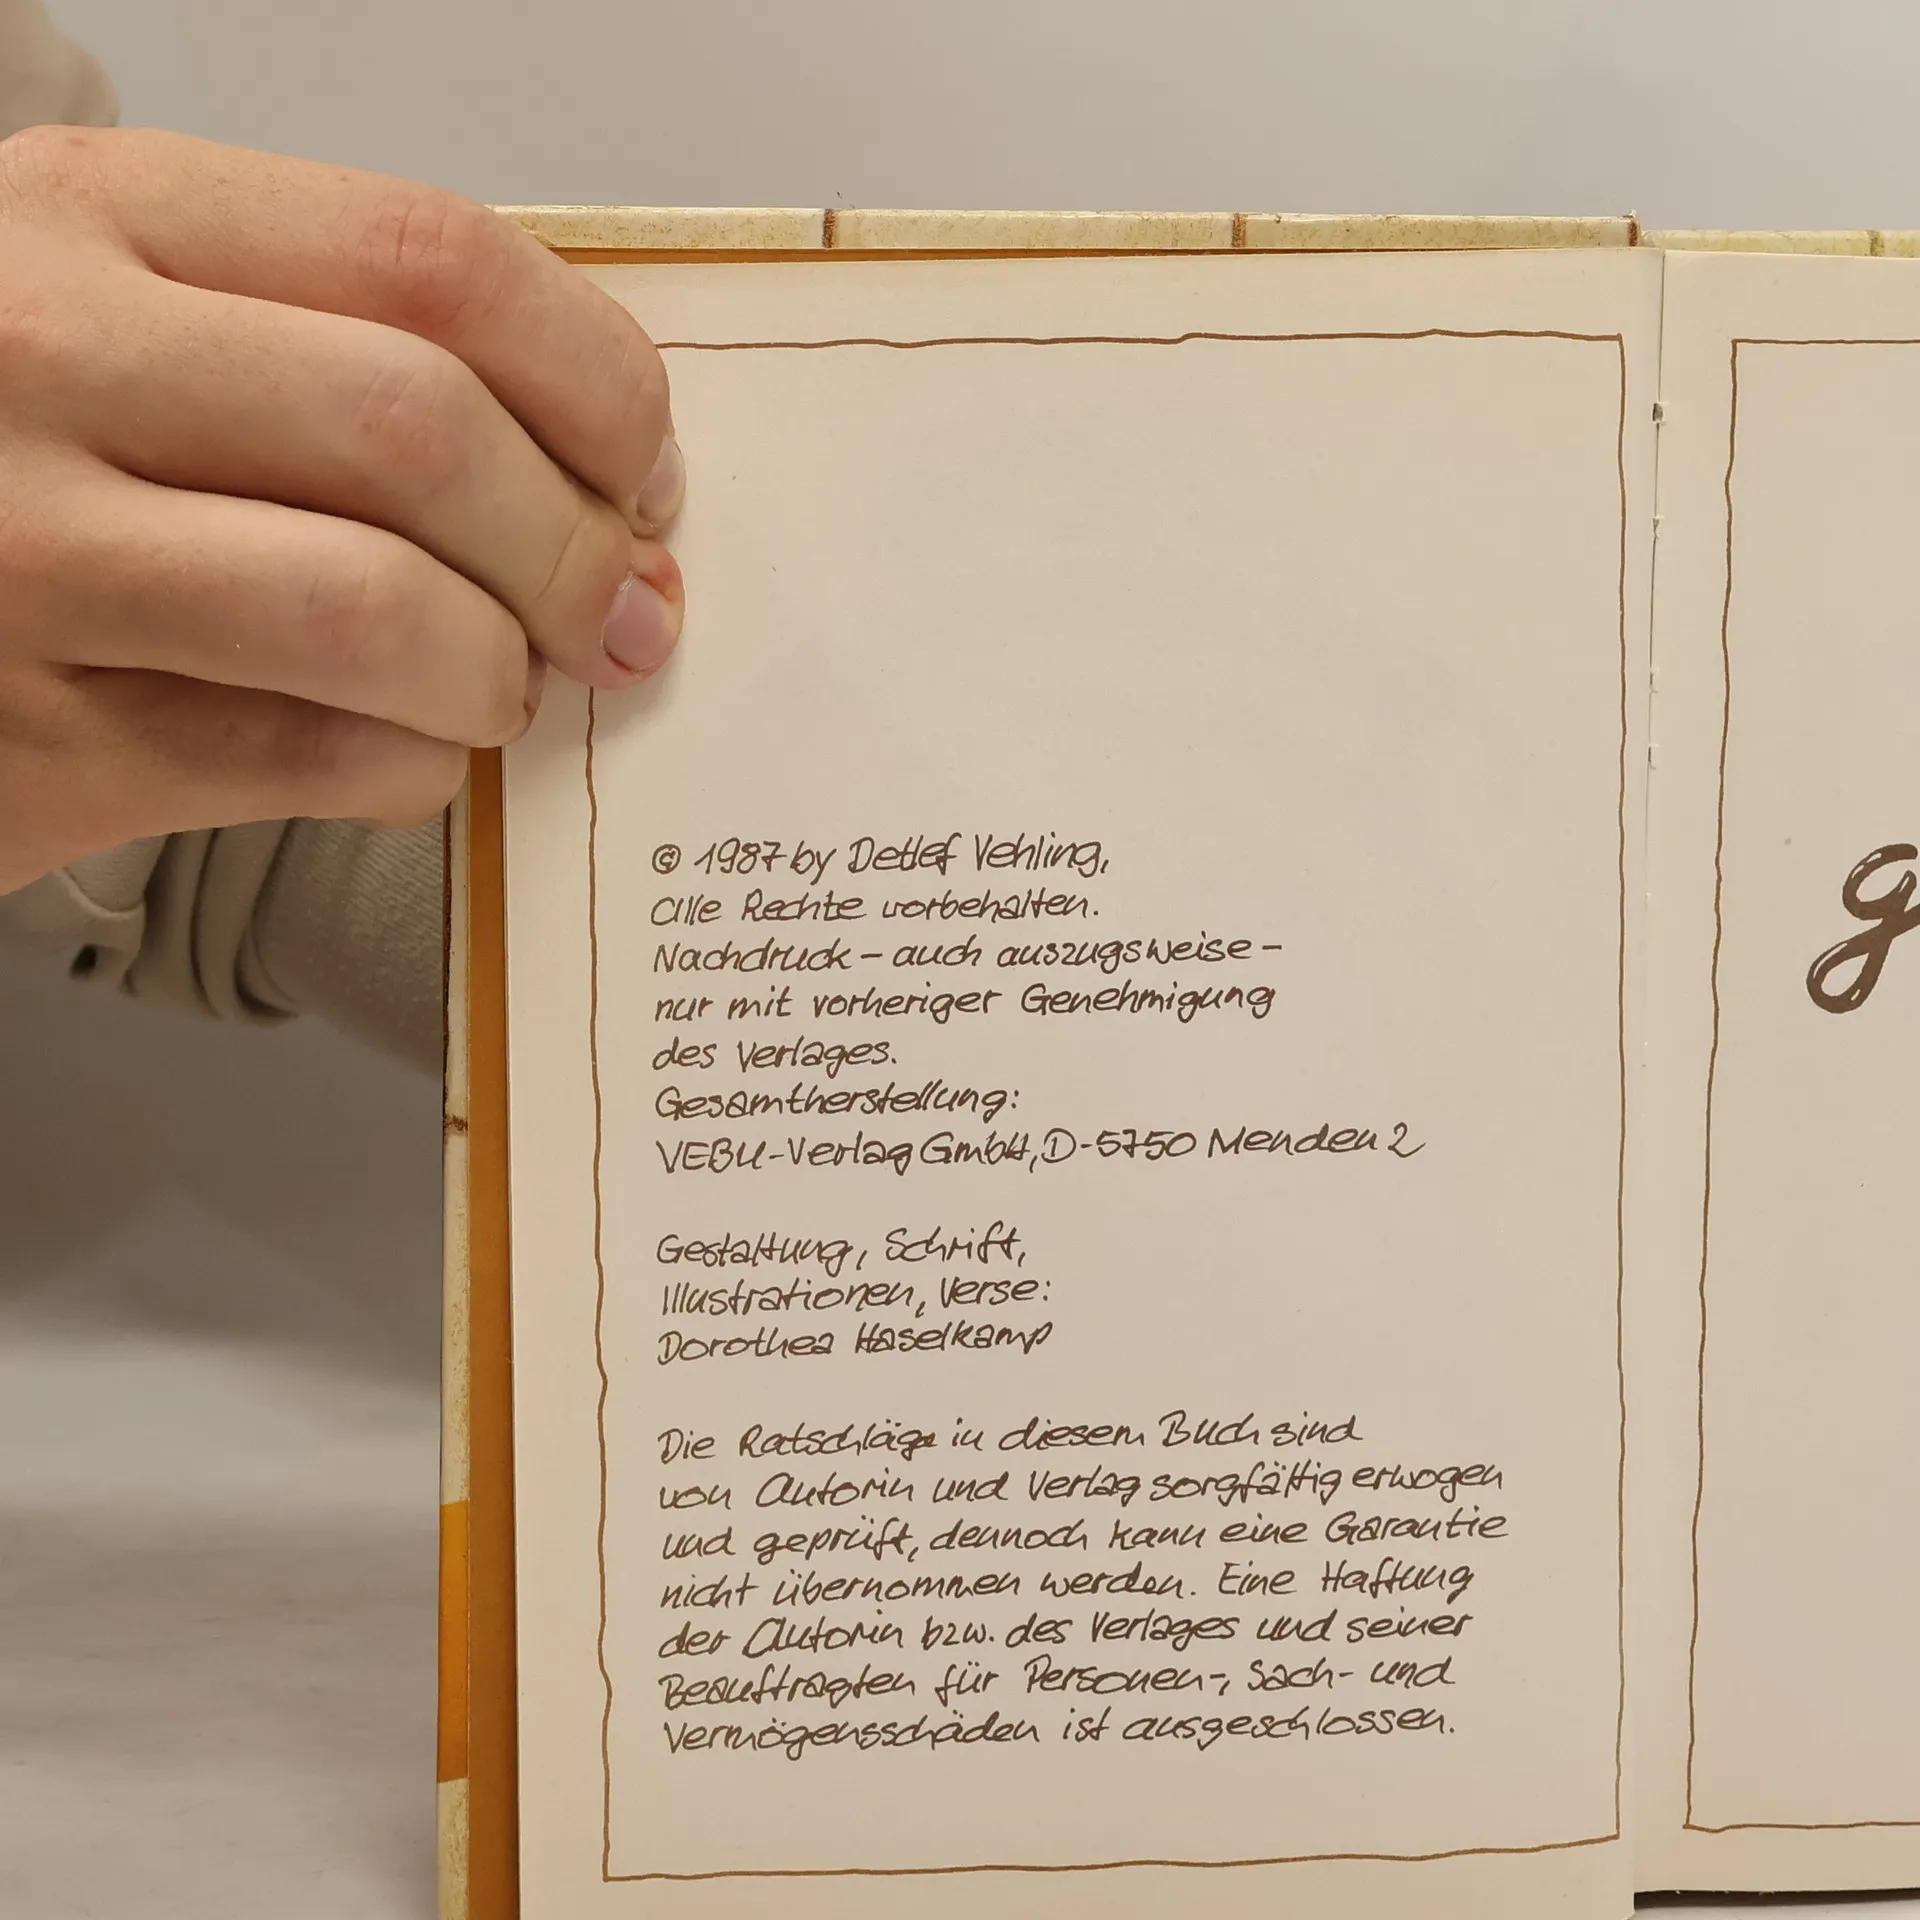 © 1987 by Detlef Vehling,
alle Rechte vorbehalten.
Nachdruck – auch auszugsweise –
nur mit vorheriger Genehmigung
des Verlages.
Gesamtherstellung:
VEBU-Verlag GmbH, D-5750 Menden 2
Gestaltung, Schrift,
Illustrationen, Verse:
Dorothea Haselkamp
Die Ratschläge in diesem Buch sind
von Autorin und Verlag sorgfältig erwogen
und geprüft, dennoch kann eine Garantie
nicht übernommen werden. Eine Haftung
der Autorin bzw. des Verlages und seiner
Beauftragten für Personen-, Sach- und
Vermögensschäden ist ausgeschlossen.
g